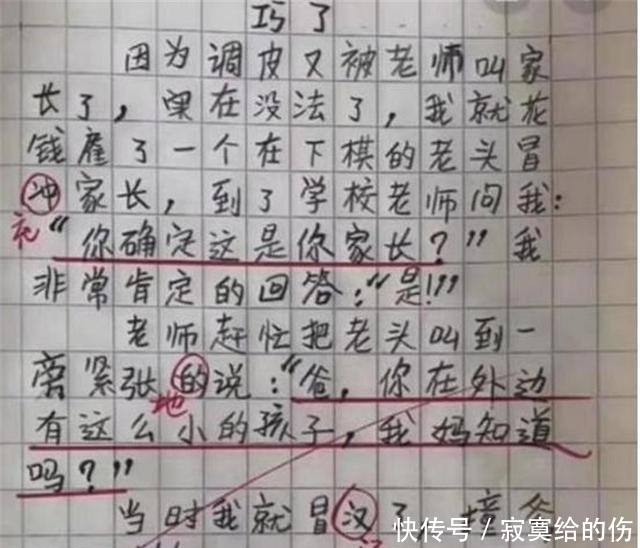 巧了
因为调皮又被老师叫家
长了，实在没法了，我就花
钱雇了一个在下棋的老头冒
冲家长，到了学校老师问我：
充
“你确定这是你家长？”我
非常肯定的回答：“是！”
老师赶忙把老头叫到一
旁紧张的说：“爸，你在外边
地
有这么小的孩子，我妈知道
吗？”
当时我就冒汉了
快传号／寂寞给的伤